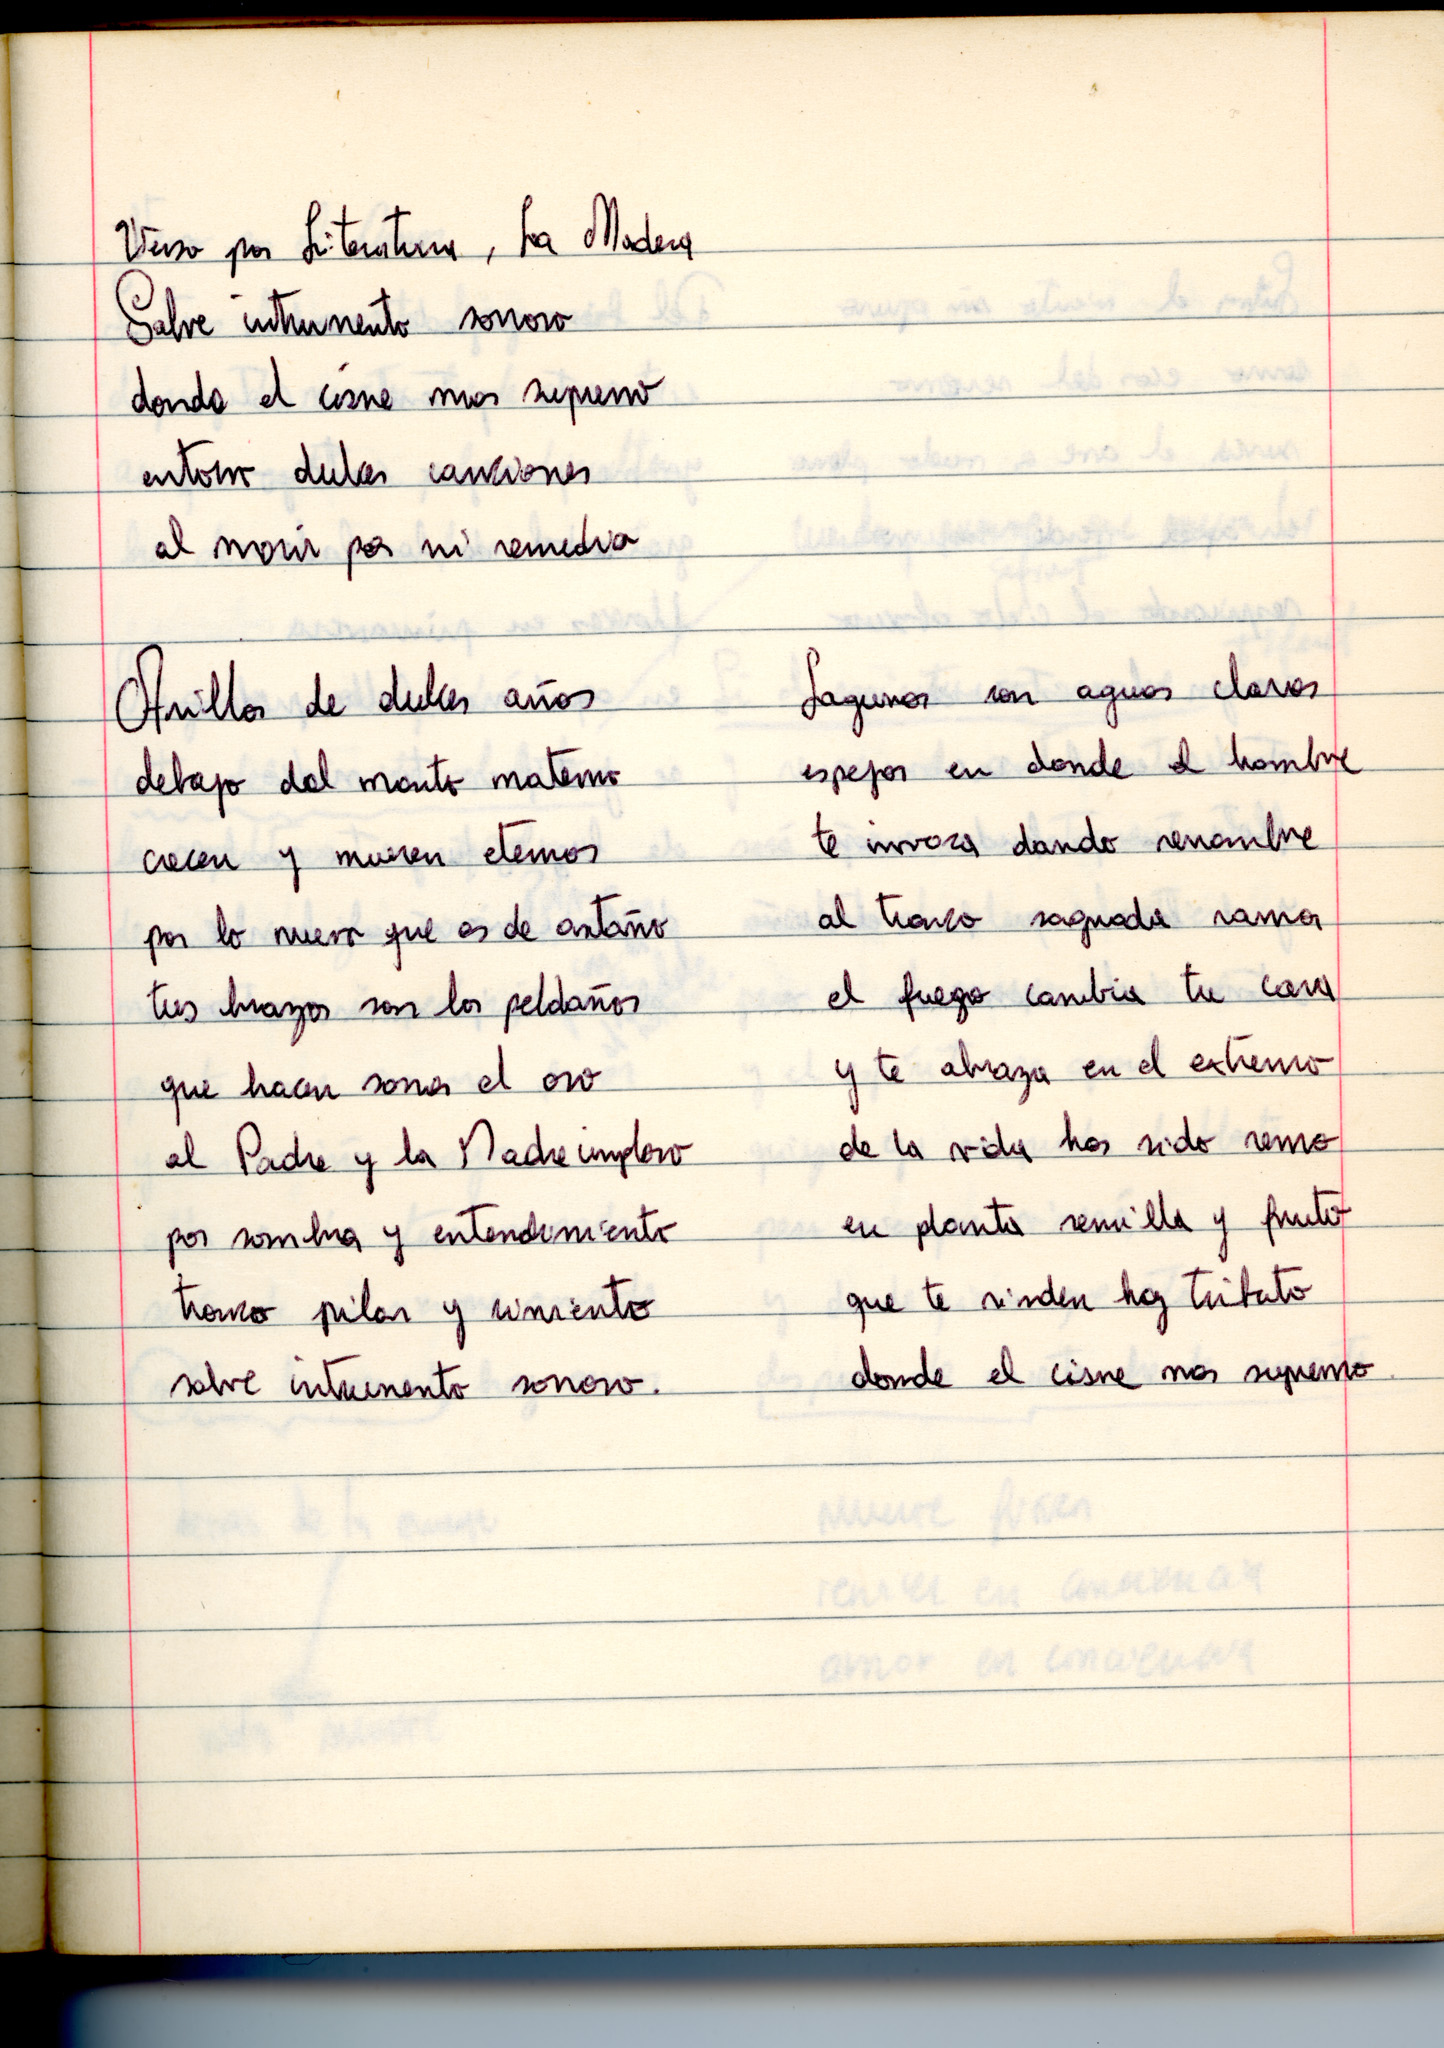 Verso por Literatura, La Madera
Salve intrumento sonoro
donde el cisne mas supremo
entono dulces canciones
al morir por ni remedio
Anillos de dulces años
debajo del manto materno
crecen y mueren eternos
por lo nuevo que es de antaño
tus brazos son los peldaños
que hacen sonar el oro
al Padre y la Madre imploro
por sombra y entendimiento
tronco pilar y cimiento
salve intrumento sonoro.
Lagunas con aguas claras
espejos en donde el hombre
te invoca dando renombre
al tronco sagrada rama
el fuego cambia tu cara
y te abraza en el extremo
de la vida has sido remo
en planta semilla y fruto
que te rinden hoy tributo
donde el cisne mas supremo.